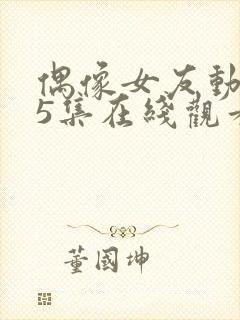 偶像女友動
5集在綫觀看
董國坤